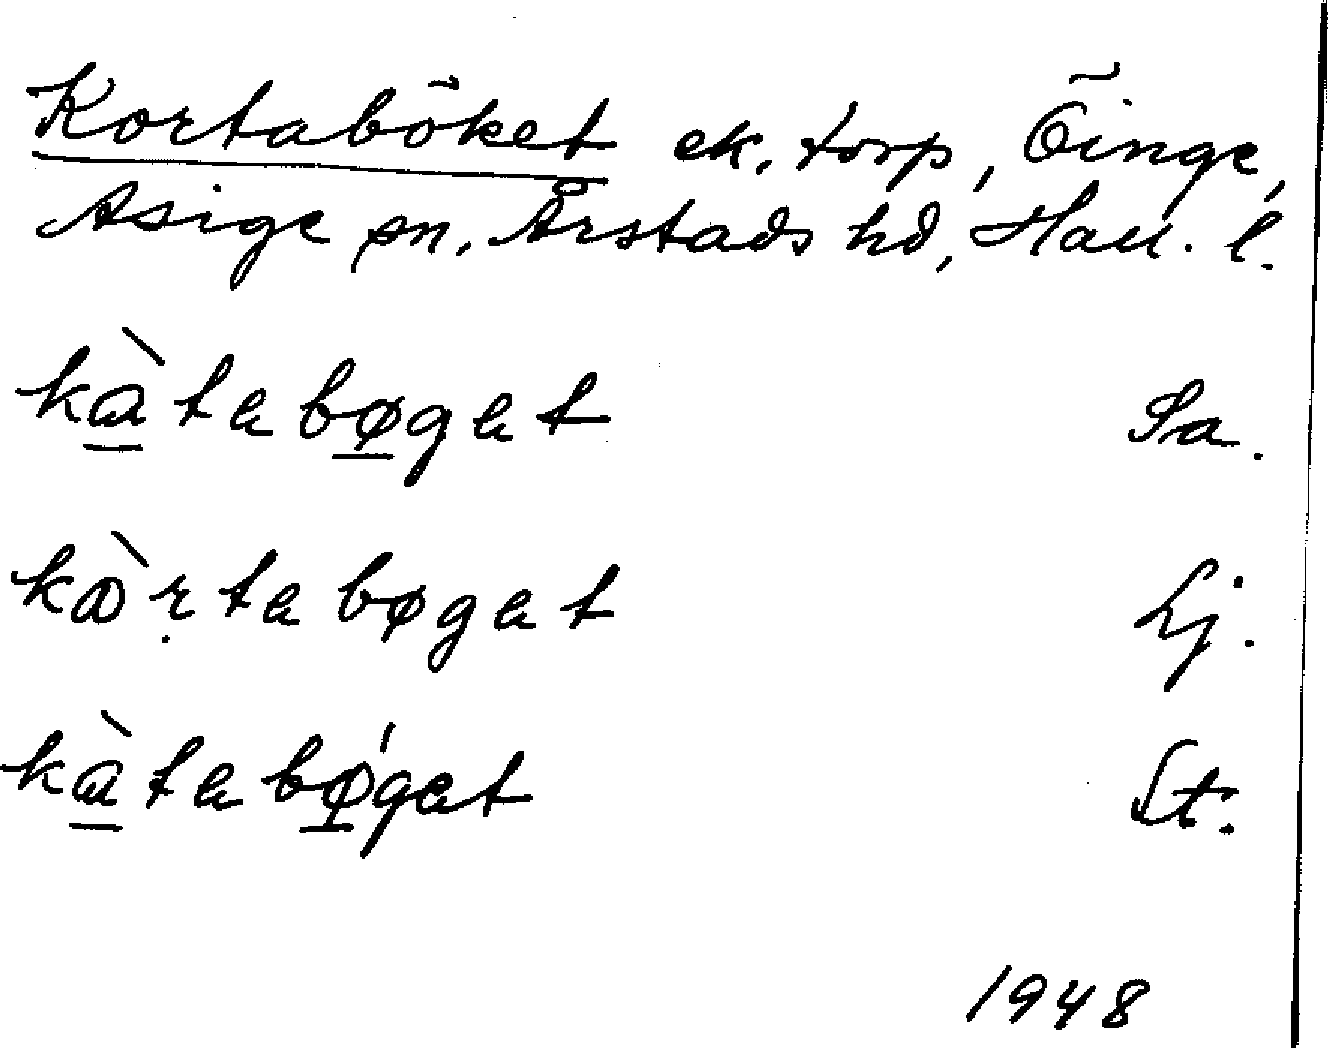 Kortaböket ek. torp, Öinge,
Asige sn. Årstads hd, Hall. l.
kàtabøgat Sa.
kàrtabøgat Lj.
kàtabø'gat St.
1948